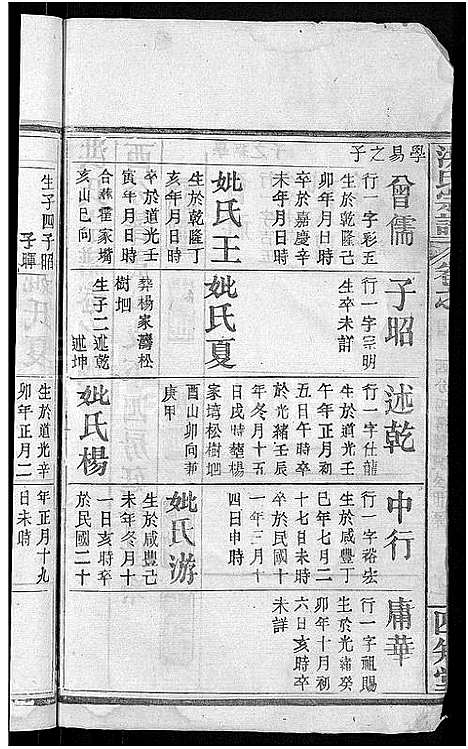 學易之子
曾儒
行一字彩玉
生於乾隆己
卯年月日時
卒於嘉慶辛
未年月日時
妣氏王
生於乾隆丁
亥年月日時
卒於道光壬
寅年月日時
合葬霍家塝
亥山巳向
子昭
行一字宗明
生卒未詳
妣氏夏
葬楊家灣松
樹垇
生子二述乾
述坤
述乾
行一字仕龍
生於道光壬
午年正月初
五日午時卒
於光緒壬辰
年冬月十五
日戌時葬楊
家塆松樹垇
酉山卯向兼
庚甲
妣氏楊
中行
行一字裕宏
生於咸豐丁
巳年七月二
十七日未時
卒於民國十
一年三月十
四日申時
妣氏游
生於咸豐己
未年冬月十
一日亥時卒
於民國二十
庸華
行一字祖賜
生於光緒癸
卯年十月初
六日亥時卒
未詳
氏宗譜
四知堂
生子四子昭
子曎
生於道光辛
卯年正月二
年正月十九
日未時